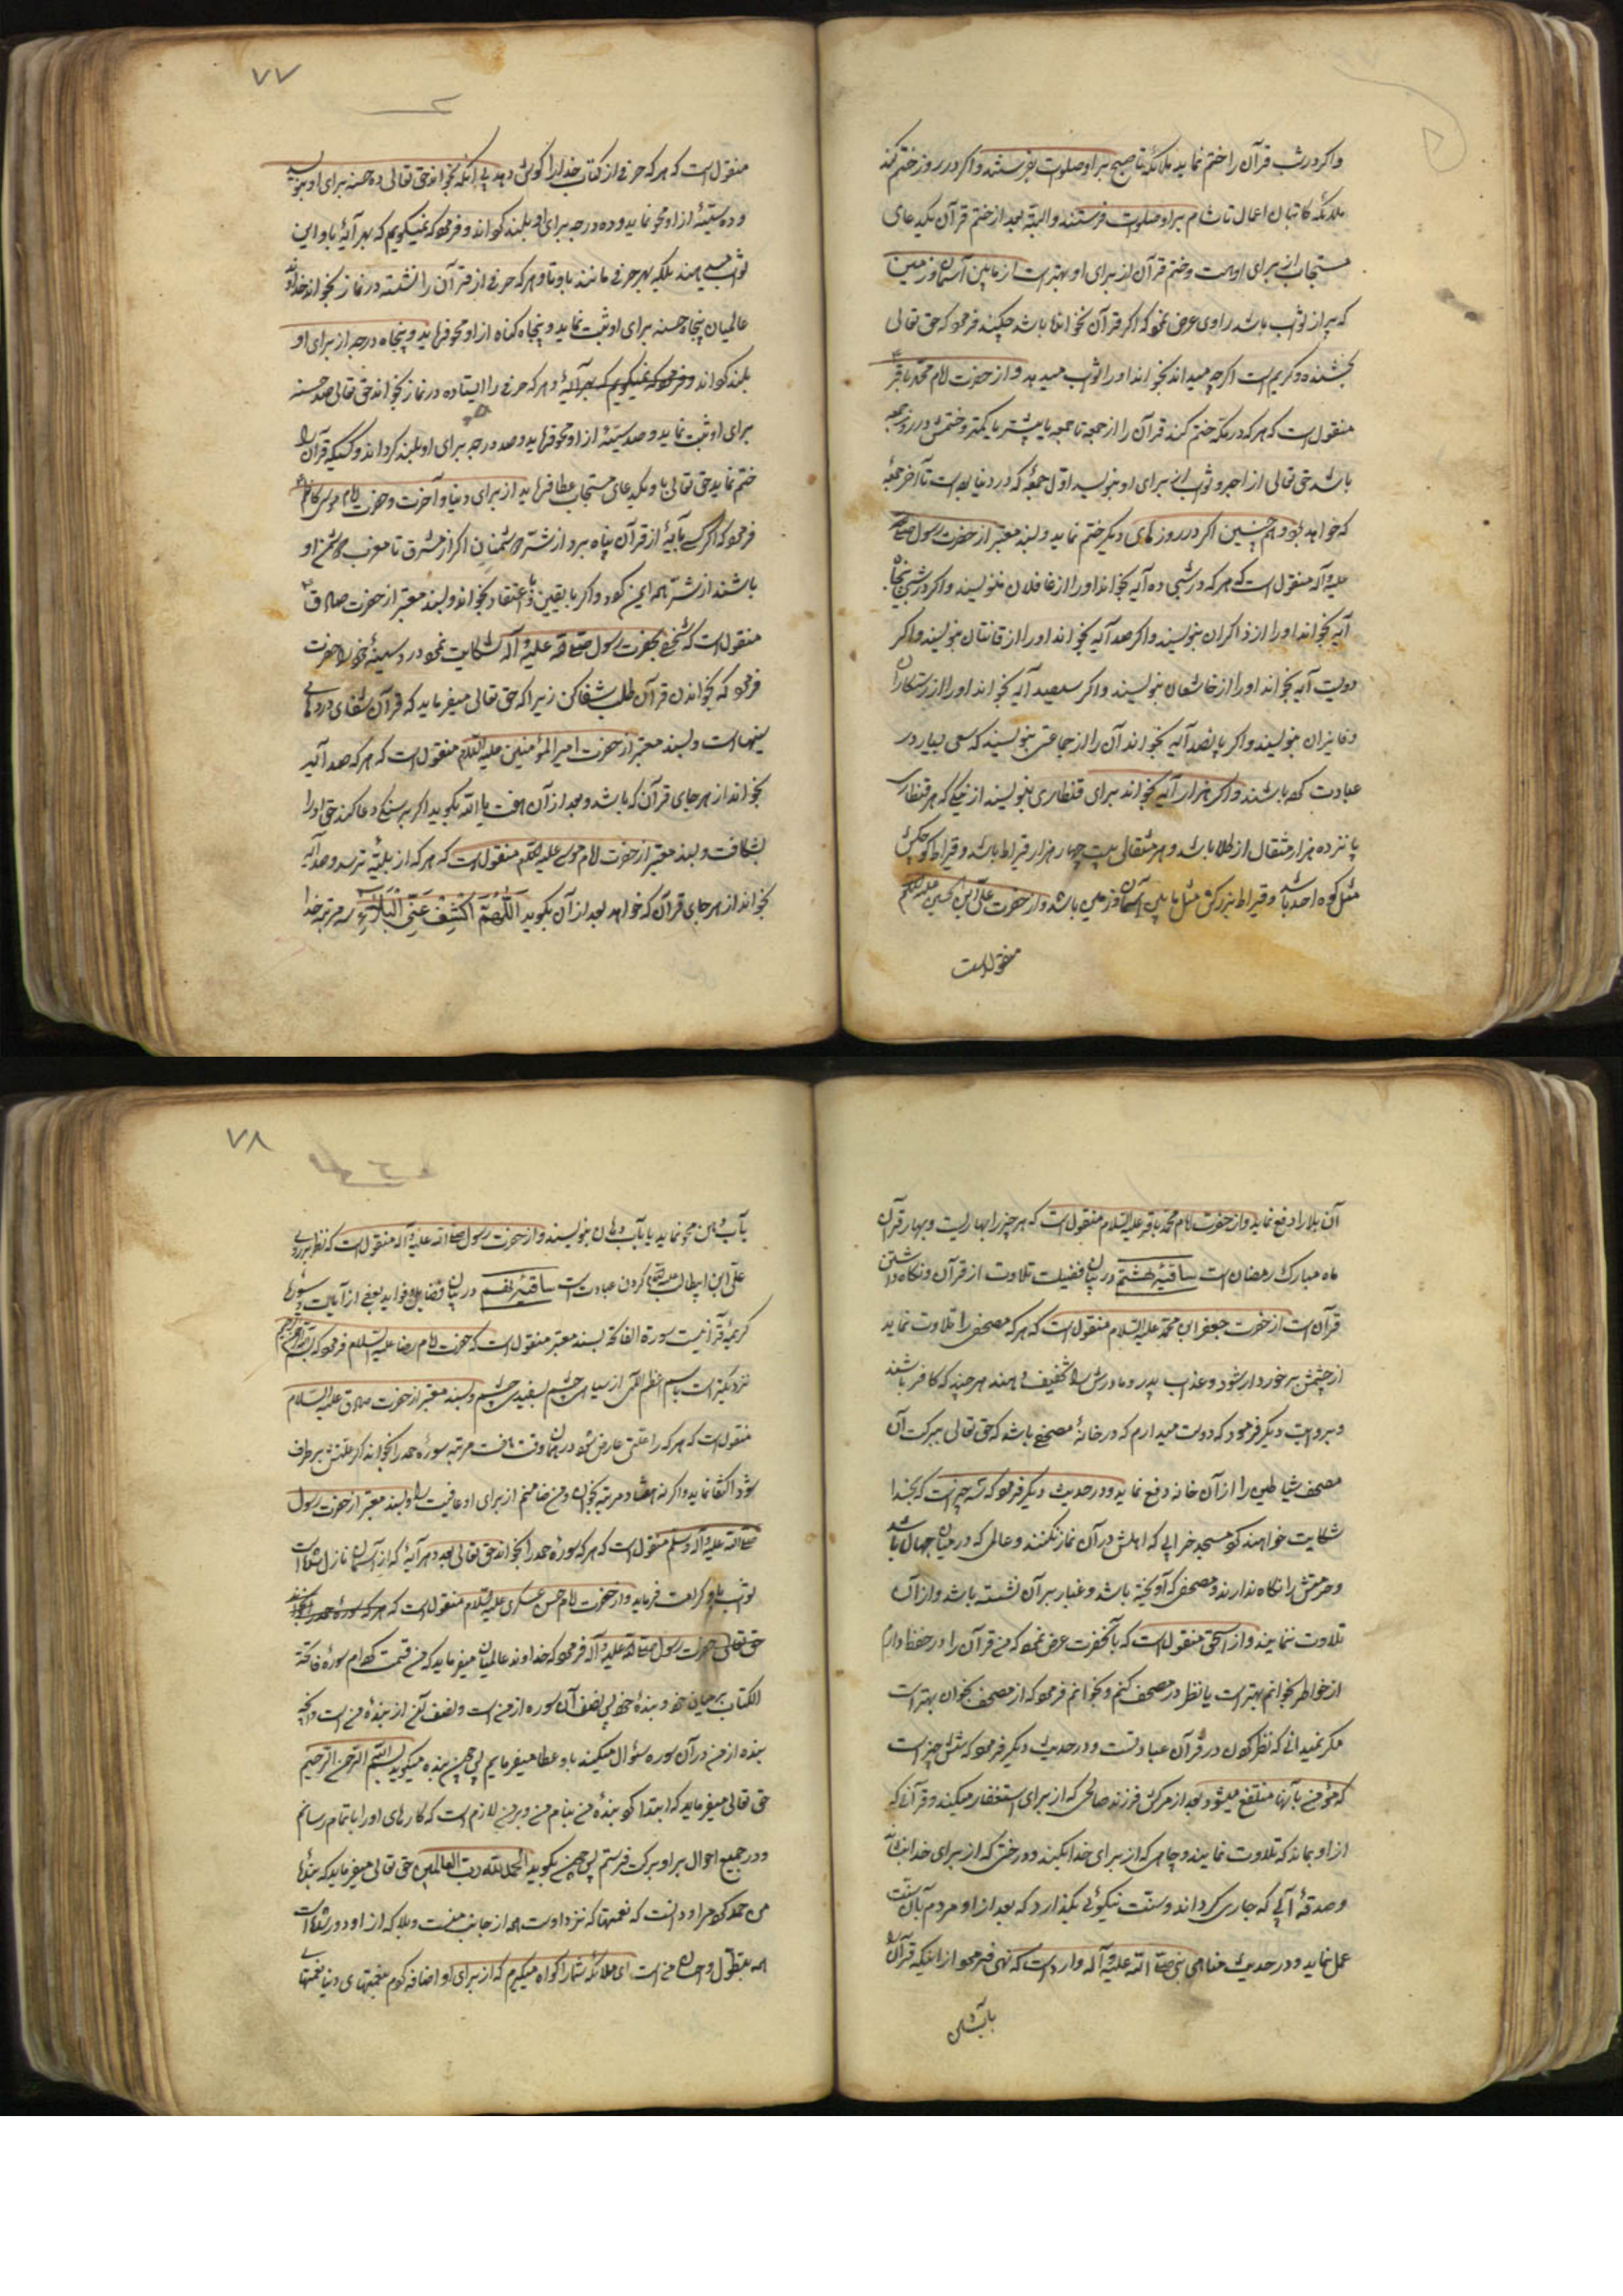 واکر در شب قرآن را ختم نماید ملائکه تا صبح بر او صلوات بفرستند و اکر در روز ختم کند
ملائکه کاتبان اعمال تا شام بر او صلوات فرستند و البته بعد از ختم قرآن یکدعای
مستجاب از برای اوست و ختم قرآن از برای او بهتر است از مابین آسمان و زمین
که پر از ثواب باشد راوی عرض نمود که اکر قرآن نخوانده باشد چکند فرمود که حق تعالی
بخشنده و کریم است اکر چه میداند بخواند او را ثواب میدهد و از حضرت امام محمد باقر
منقول است که هر که در مکه ختم کند قرآن را از جمعه تا جمعه یا بیشتر یا کمتر و ختمش در روز جمعه
باشد حق تعالی از اجر و ثواب از برای او بنویسد از اول جمعهٔ که در دنیا بوده است تا آخر جمعهٔ
که خواهد بود و همچنین اکر در روزهای دیکر ختم نماید و بسند معتبر از حضرت رسول صلی الله
علیه و آله منقول است که هر که در شبی ده آیه بخواند او را از غافلان ننویسند و اکر در شبی پنجاه
آیه بخواند او را از ذاکران بنویسند و اکر صد آیه بخواند او را از قانتان بنویسند و اکر
دویست آیه بخواند او را از خاشعان بنویسند و اکر سیصد آیه بخواند او را از رستکاران
و فایزان بنویسند و اکر پانصد آیه بخواند آن را از جماعتی بنویسند که سعی بسیار در
عبادت کرده باشند و اکر هزار آیه بخواند برای قنطاری بنویسند از نیکی که هر قنطار
پانزده هزار مثقال از طلا باشد و هر مثقالی بیست چهار هزار قیراط باشد و قیراط کوچکش
مثل کوه احد باشد و قیراط بزرکش مثل مابین آسمان و زمین باشد و از حضرت علی ابن الحسین علیه السلام
منقول است
۷۷
منقول است که هر که حرفی از کتاب خدا را کوش دهد بی آنکه بخواند حق تعالی ده حسنه برای او بنویسد
و ده سیئهٔ از او محو نماید و ده درجه برای او بلند کرداند و فرمود که نمیکویم که بهر آیهٔ باو این
ثواب میدهند بلکه بهر حرفی مانند با و تا و هر که حرفی از قرآن را نشسته در نماز بخواند خداوند
عالمیان پنجاه حسنه برای او ثبت نماید و پنجاه کناه از او محو فرماید و پنجاه درجه از برای او
بلند کرداند و فرمود که نمیکویم که بهر آیهٔ و هر که حرفی را ایستاده در نماز بخواند حق تعالی صد حسنه
برای او ثبت نماید و صد سیئهٔ از او محو فرماید و صد درجه برای او بلند کرداند و کسیکه قرآن را
ختم نماید حق تعالی باو یکدعای مستجاب عطا فرماید از برای دنیا و آخرت و حضرت امام موسی کاظم
فرمود که اکر کسی بآیهٔ از قرآن پناه برد از شر دشمنان اکر از مشرق تا مغرب دشمن او
باشند از شر همه ایمن کردد و اکر با یقین و اعتقاد بخواند و بسند معتبر از حضرت صادق
منقول است که شخصی بحضرت رسول صلی الله علیه و آله شکایت نمود درد سینهٔ خود را حضرت
فرمود که بخواندن قرآن طلب شفا کن زیرا که حق تعالی میفرماید که قرآن شفای دردهای
سینهاست و بسند معتبر از حضرت امیر المؤمنین علیه السلام منقول است که هر که صد آیه
بخواند از هر جای قرآن که باشد و بعد از آن هفت یا الله بکوید اکر بر سنکی دعا کند حق او را
بشکافد و بسند معتبر از حضرت امام موسی علیه السلام منقول است که هر که از بلیه ترسد و صد آیه
بخواند از هر جای قرآن که خواهد بعد از آن بکوید اَللّهُمَّ اکْشِفْ عَنِّی الْبَلاءَ سه مرتبه خدا
آن بلا را دفع نماید و از حضرت امام محمد باقر علیه السلام منقول است که هر چیز را بهاریست و بهار قرآن
ماه مبارک رمضان است ساقیهٔ هشتم در بیان فضیلت تلاوت از قرآن و نکاه داشتن
قرآن است از حضرت جعفر ابن محمد علیه السلام منقول است که هر که مصحف را تلاوت نماید
از چشمش برخوردار شود و عذاب پدر و مادرش را تخفیف دهند هر چند که کافر باشند
و بروایت دیکر فرمود که دوست میدارم که در خانهٔ مصحفی باشد که حق تعالی ببرکت آن
مصحف شیاطین را از آن خانه دفع نماید و در حدیث دیکر فرمود که سه چیز است که بخدا
شکایت خواهند کرد مسجد خرابی که اهلش در آن نماز نکنند و عالمی که در میان جهال باشد
و حرمتش را نکاه ندارند و مصحفی که آویخته باشد و غبار بر آن نشسته باشد و از آن
تلاوت ننمایند و از اسحق منقول است که بآنحضرت عرض نمود که من قرآن را در حفظ دارم
از خواطر بخوانم بهتر است یا نظر در مصحف کنم و بخوانم فرمود که از مصحف بخوان بهتر است
مکر نمیدانی که نظر کردن در قرآن عبادتست و در حدیث دیکر فرمود که شش چیز است
که مؤمن بآنها منتفع میشود بعد از مرکش فرزند صالحی که از برای استغفار میکند و قرآنی که
از او بماند که تلاوت نمایند و چاهی که از برای خدا بکند و درختی که از برای خدا بنشاند
و صدقهٔ آبی که جاری کرداند و سنت نیکوئی بکذارد که بعد از او مردم بآن سنت
عمل نمایند و در حدیث مناهی نبی صلی الله علیه و آله وارد است که نهی فرمود از اینکه قرآن را
بآب دهن
۷۸
بآب دهن محو نماید یا بآب دهان بنویسند و از حضرت رسول صلی الله علیه و آله منقول است که نظر بر روی
علی ابن ابیطالب علیه السلام کردن عبادت است ساقیهٔ نهم در بیان فضایل و فواید بعضی از آیات و سورهٔ
کریمهٔ قرآنیست سورة الفاتحه بسند معتبر منقول است که حضرت امام رضا علیه السلام فرمود که بسم الله الرحمن الرحیم
نزدیکتر است باسم اعظم الهی از سیاهی چشم بسفیدی چشم و بسند معتبر از حضرت صادق علیه السلام
منقول است که هر که را علتی عارض شود در همان وقت هفت مرتبه سورهٔ حمد را بخواند اکر علتش برطرف
شود اکتفا نماید و اکر نه هفتاد مرتبه بخواند و من ضامنم از برای او عافیت را و بسند معتبر از حضرت رسول
صلی الله علیه و آله و سلم منقول است که هر که سورهٔ حمد را بخواند حق تعالی بعدد هر آیهٔ که از آسمان نازل شده است
ثواب باو کرامت فرماید و از حضرت امام حسن عسکری علیه السلام منقول است که هر که سورهٔ حمد را بخواند
حق تعالی حضرت رسول صلی الله علیه و آله فرمود که خداوند عالمیان میفرماید که من قسمت کرده ام سورهٔ فاتحة
الکتاب بر میان خود و بندهٔ خود پس نصف آن سوره از من است و نصف آن از بندهٔ من است و آنچه
بنده از من در آن سوره سئوال میکند باو عطا میفرمایم پس چون بنده میکوید بسم الله الرحمن الرحیم
حق تعالی میفرماید که ابتدا کرد بندهٔ من بنام من و بر من لازم است که کارهای او را باتمام رسانم
و در جمیع احوال بر او برکت فرستم پس چون بکوید الحمد لله رب العالمین حق تعالی میفرماید که بندهٔ
من حمد کرد مرا و دانست که نعمتها که نزد اوست همه از جانب منست و بلا که از او دور شده است
همه بتطول و احسان من است ای ملائکه شما را کواه میکیرم که از برای او اضافه کردم بنعمتهای دنیا نعمتهای